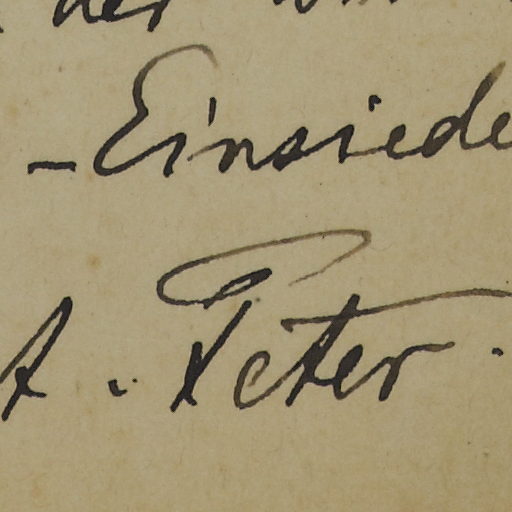 der
-Einsiede
t. Peter.